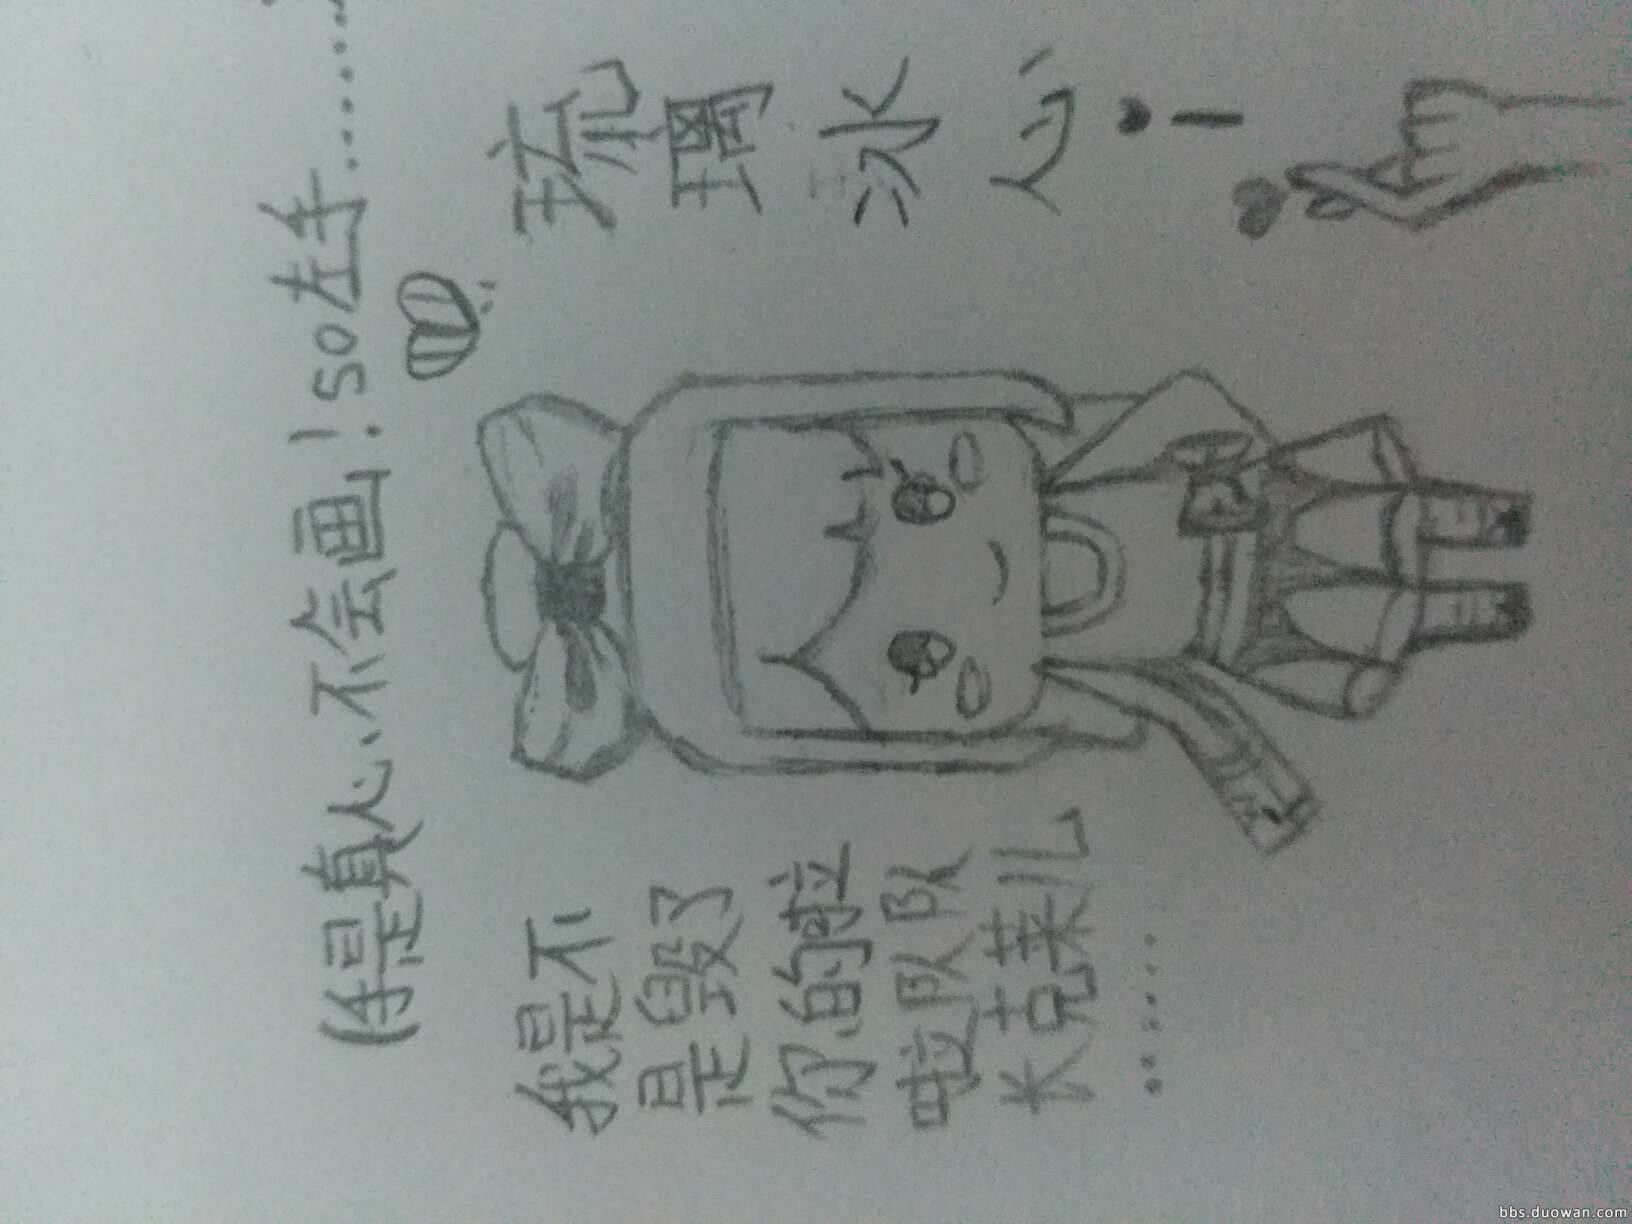 是真心、不会画!so左手……
我是不
是毁了
你的啦
啦队队
长克莱儿
……
琉
璃
冰
心
bbs.duowan.com